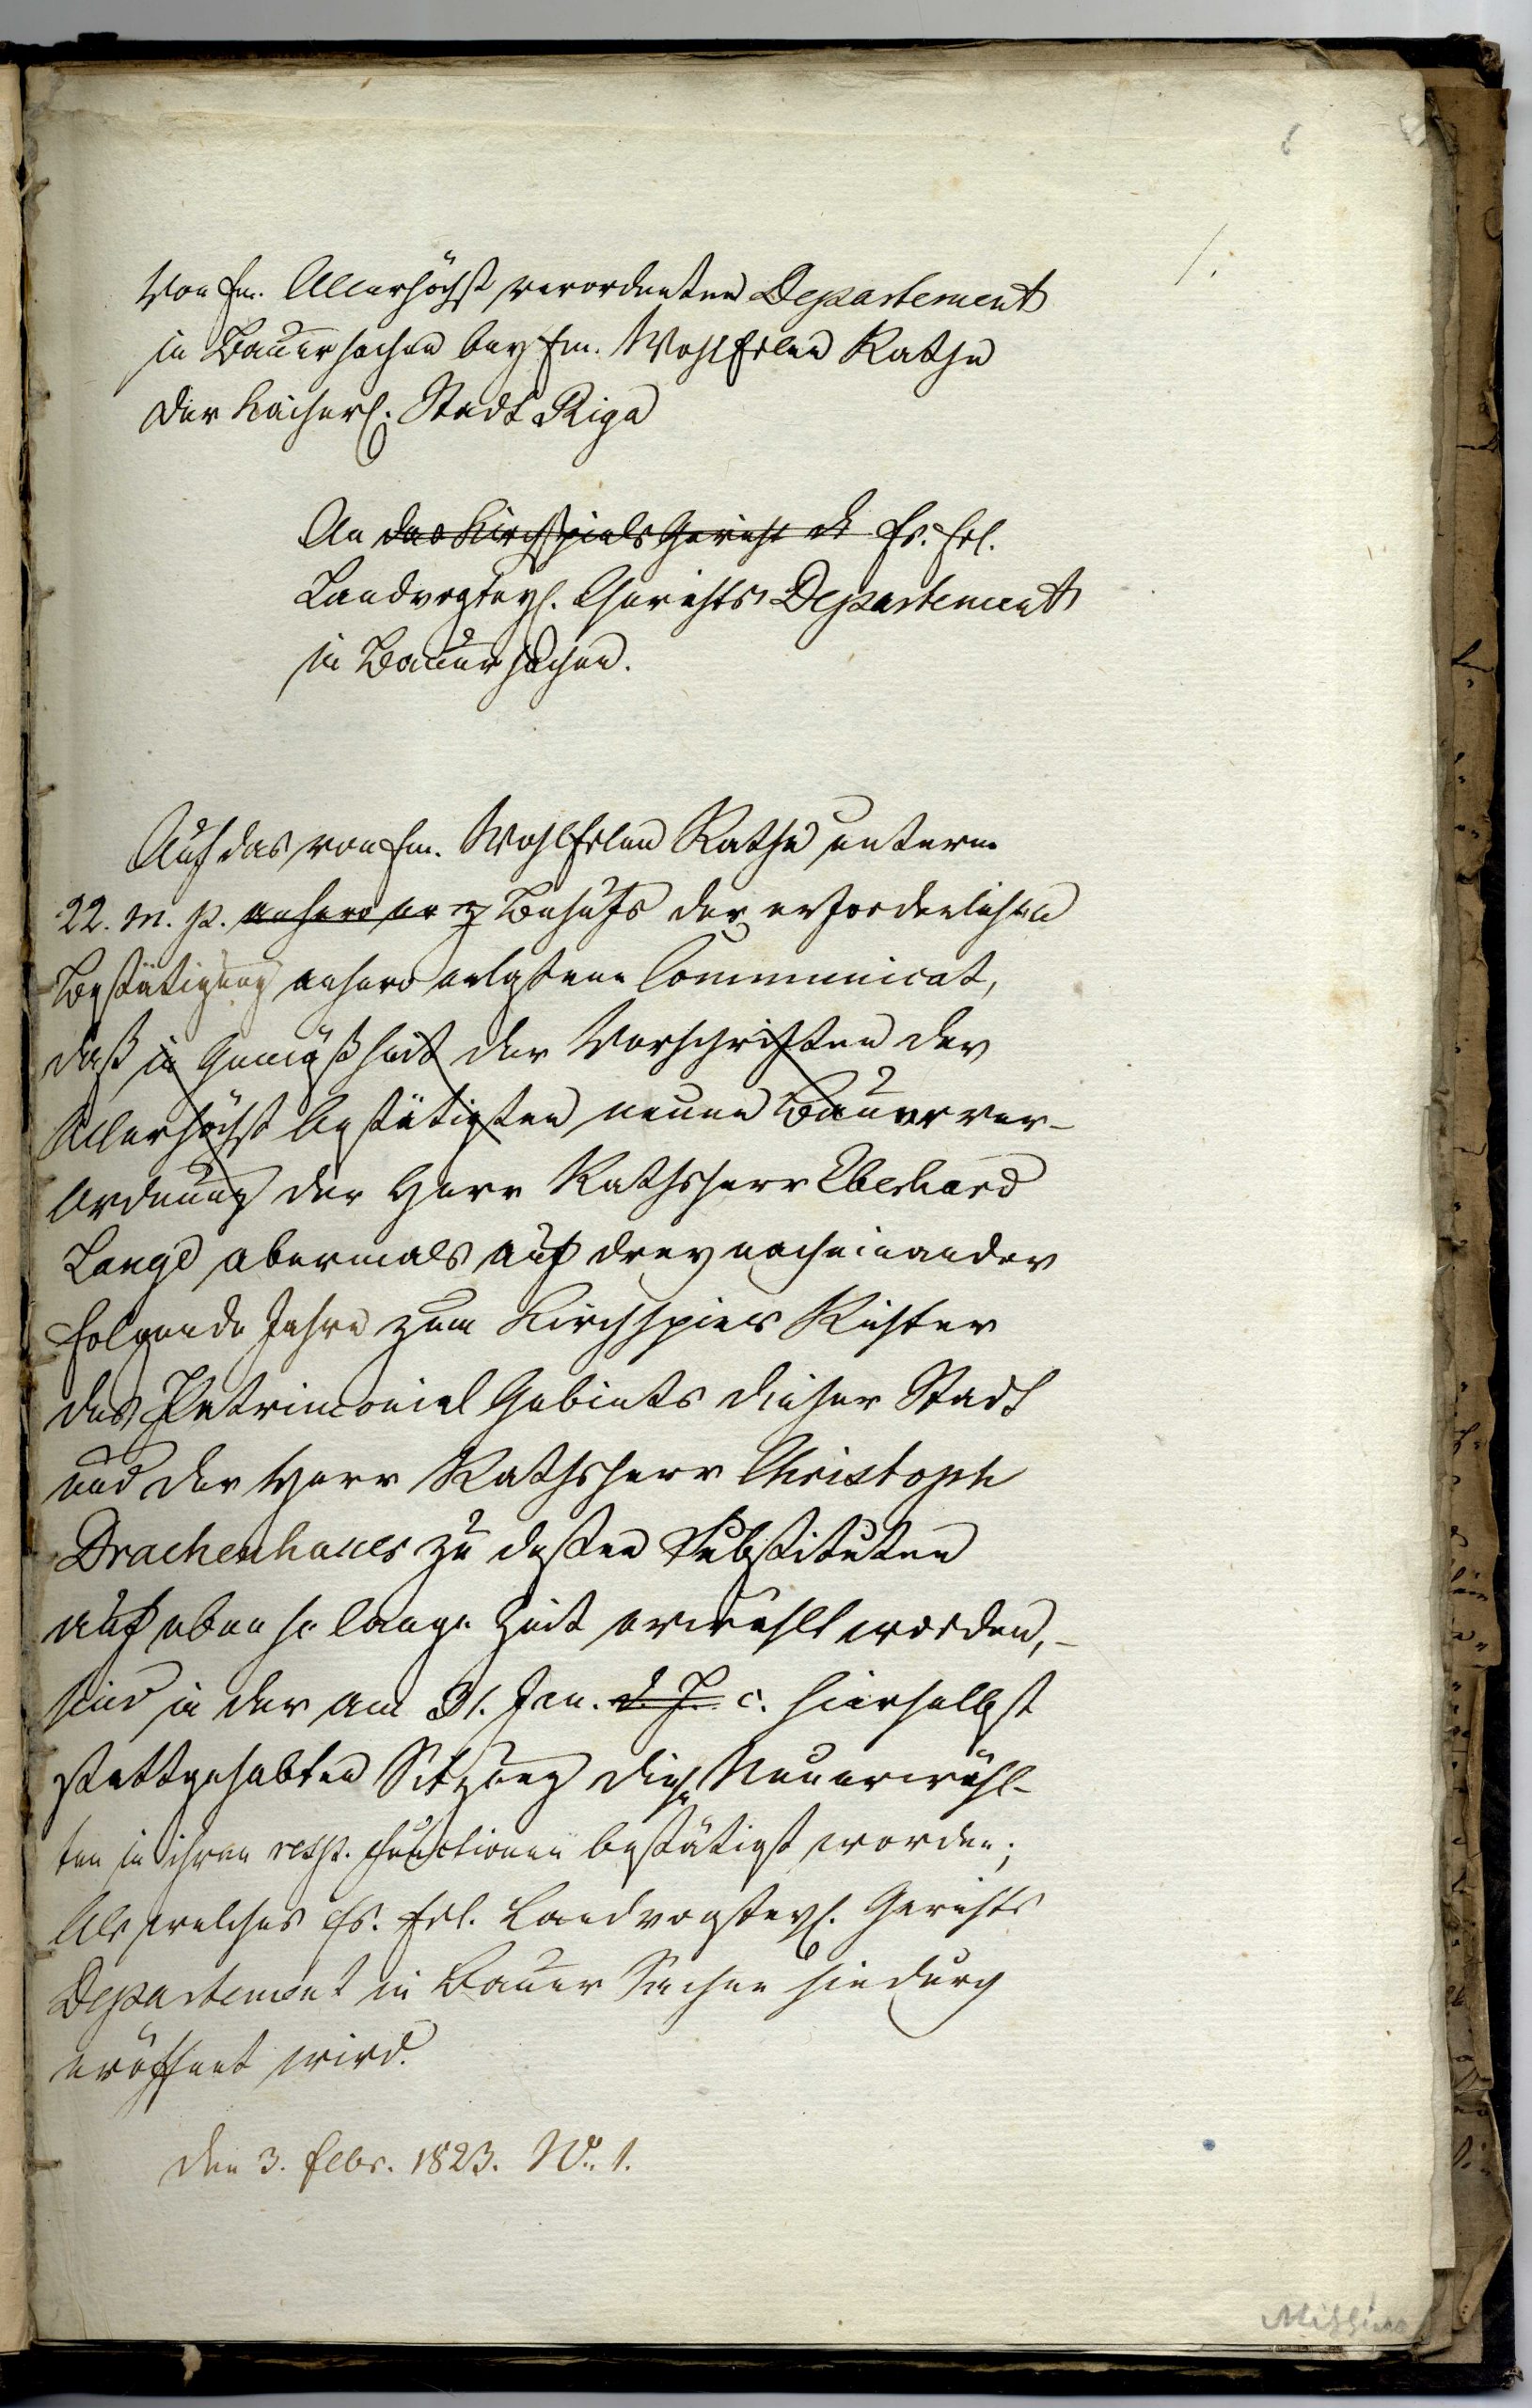 6
1.
Von Em. Allerhöchst verordneten Departement
in Bauersachen bey Em. WohlEdlen Rathe
der Kaiserl. Stadt Riga
An das Kirchspiels Gericht d Es. Edl.
Landvogteyl. Gerichts Departement
in Bauersachen.
Auf das von Em. WohlEdlen Rathe unterm
22. m. p. anhero er z Behufs der erforderlichen
Bestätigung anhero erlaßene Communicat,
daß in Gemäßheit der Vorschriften der
Allerhöchst bestätigten neuen Bauerver-
ordnung der Herr Rathsherr Eberhard
Lange abermals auf drey nacheinander
folgende Jahre zum Kirchspiels Richter
des Patrimonial Gebiets dieser Stadt
und der Herr Rathsherr Christoph
Drachenhauer zu deßen Substituten
auf eben so lange Zeit erwählt worden,-
sind in der am 31. Jan. d. J. c. hierselbst
stattgehabten Sitzung diese Neuerwähl-
ten in ihren resp. Functionen bestätigt worden;
Als welches Es. Edl. Landvogteyl. Gerichts
Departement in Bauer Sachen hiedurch
eröffnet wird.
den 3. Febr. 1823. No. 1.